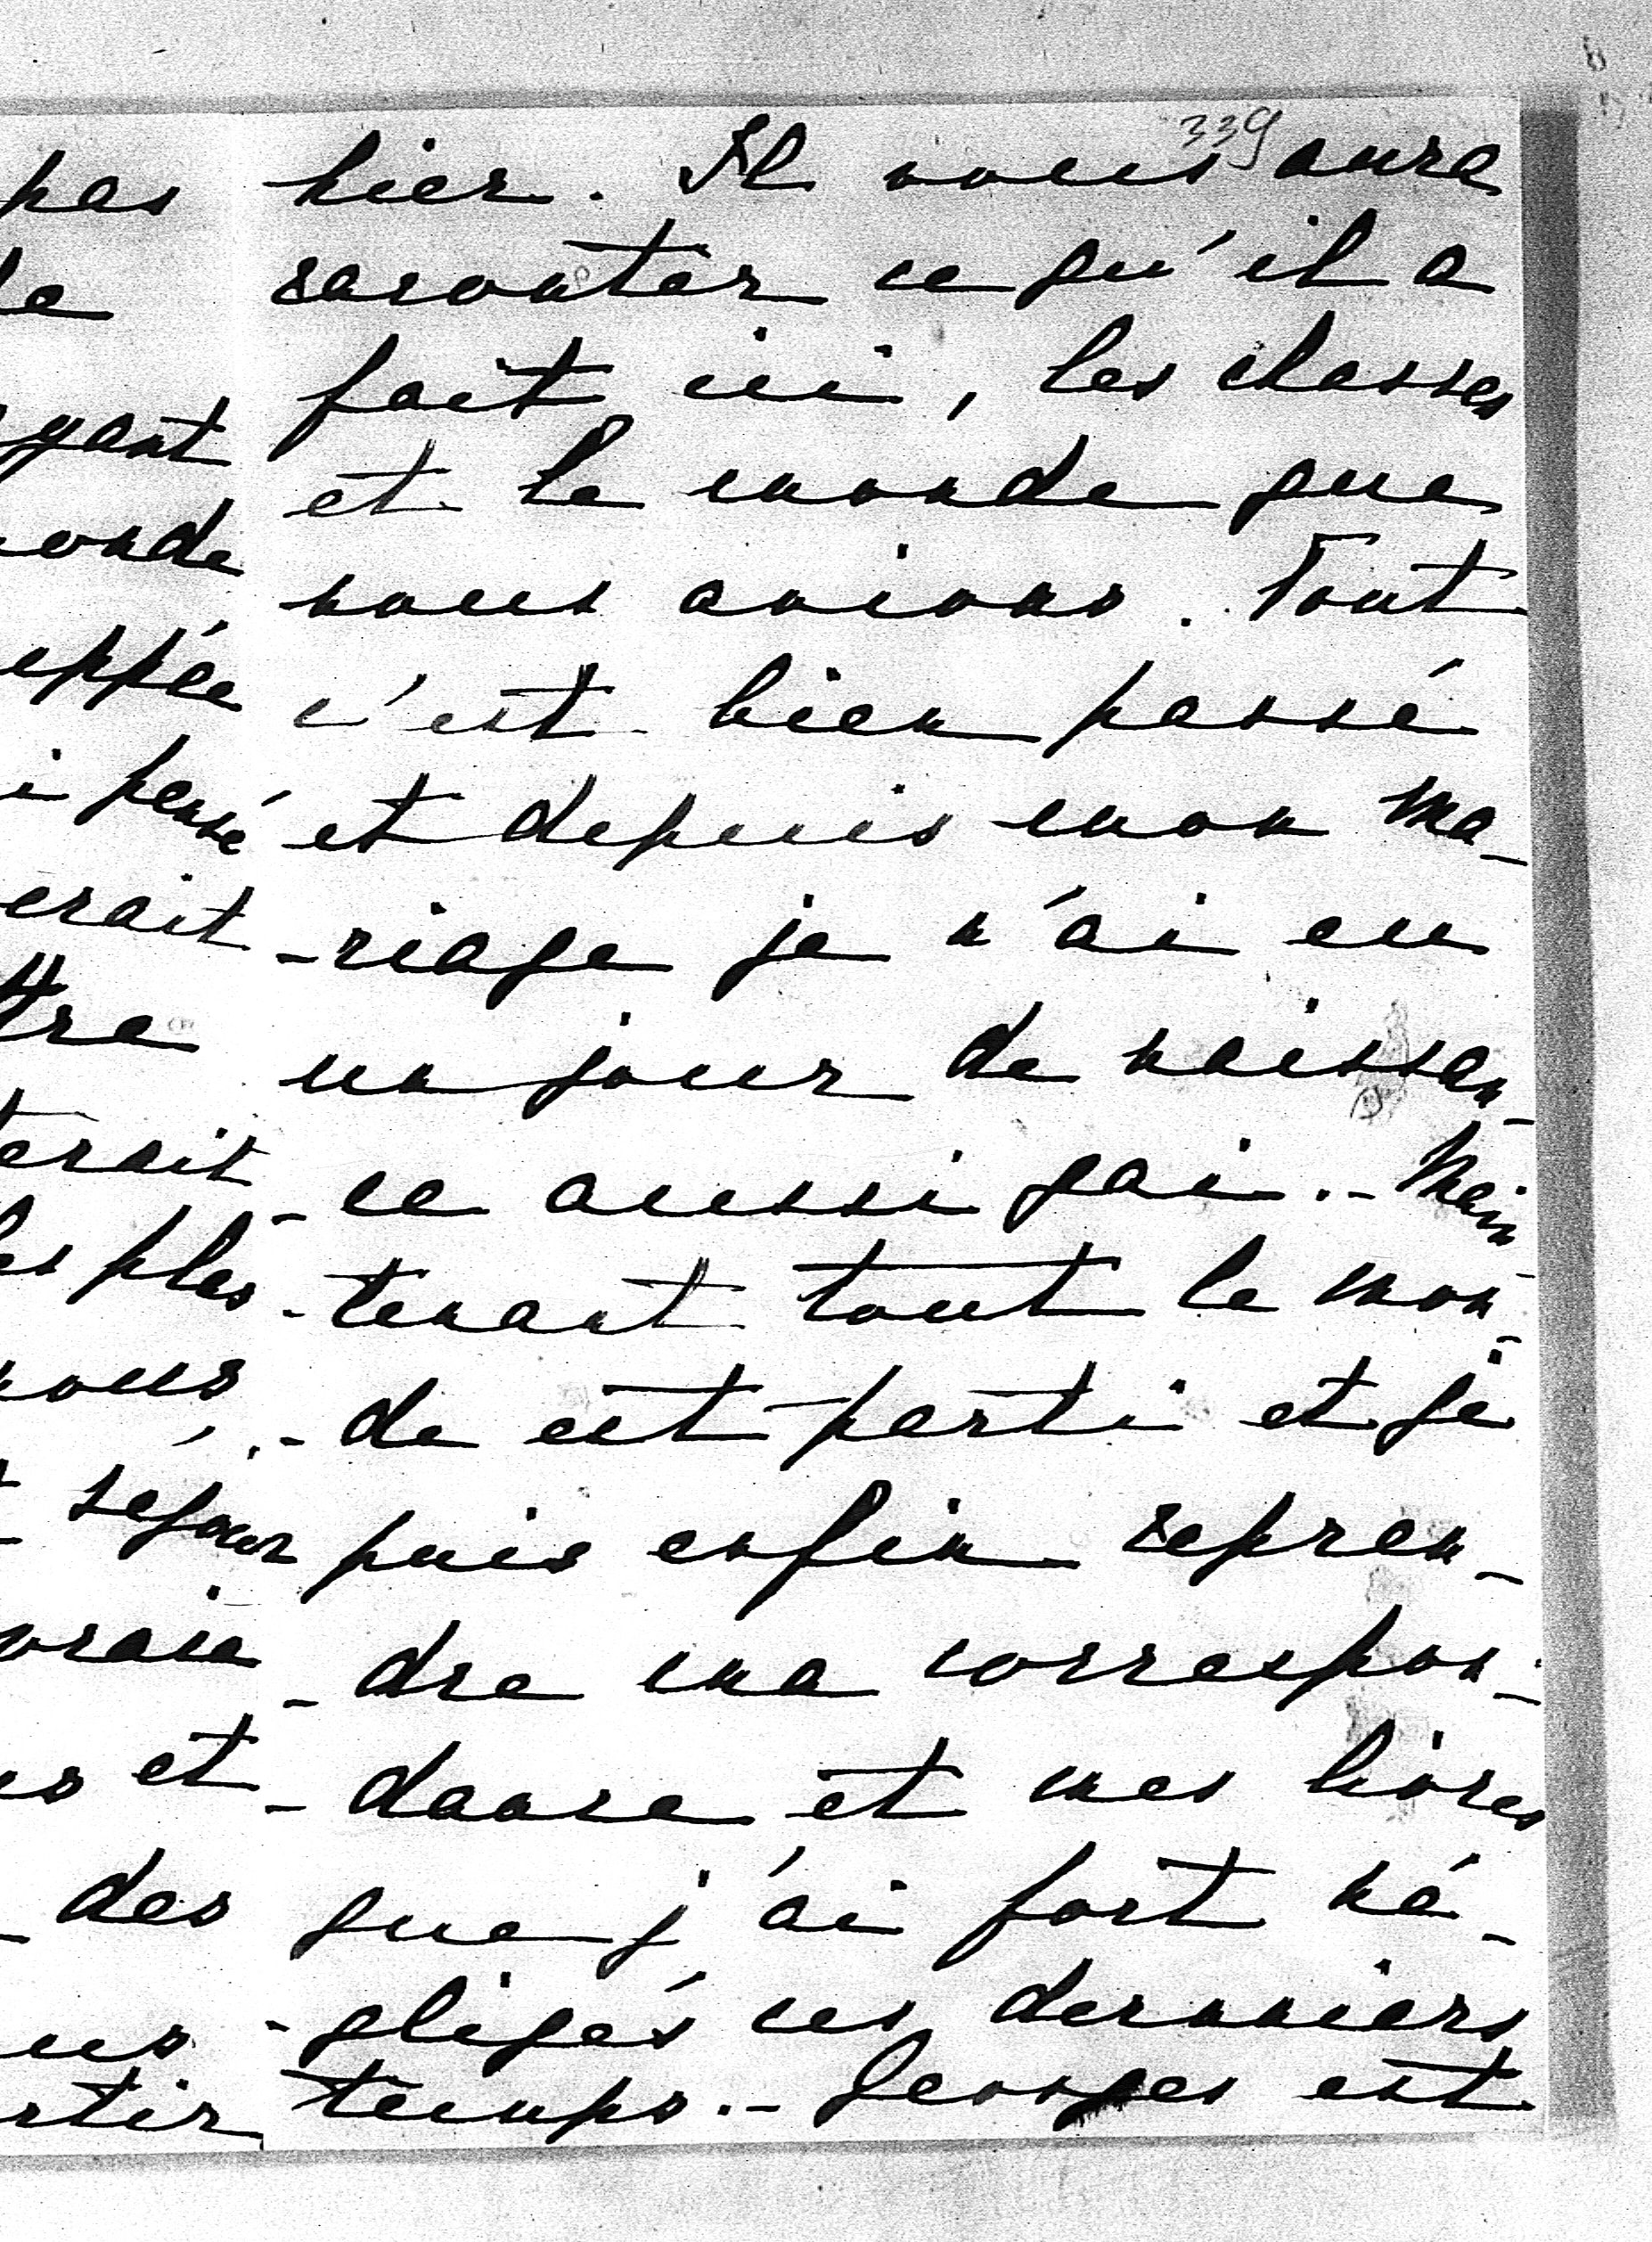 339
pas
le
yant
onde
eppée
i pensé
erait
ttre
terait
les plus
nous
séjour
vraie
et
des
us
rtir
hier. Il vous aura
raconter ce qu'il a
fait ici, les chasses
et le monde que
nous avions. Tout
c'est bien passé
et depuis mon ma-
-riage je n'ai eu
un jour de naissan-
-ce aussi gai.- Main-
-tenant tout le mon-
-de est parti et je
puis enfin repren-
-dre ma correspon-
-dance et mes livres
que j'ai fort né-
-gligés ces derniers
temps.- Georges est